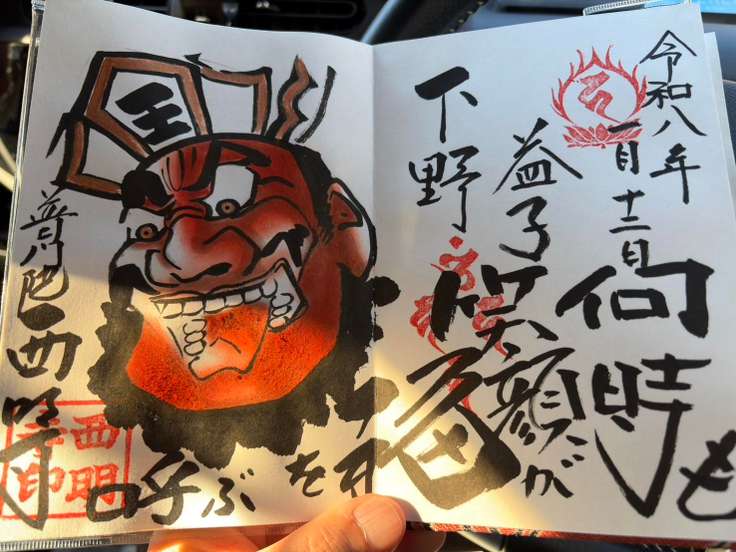 令和八年
一月十二日
何時も
益子
笑顔が
下野
福を呼ぶ
王
普門 西明寺
西明寺印